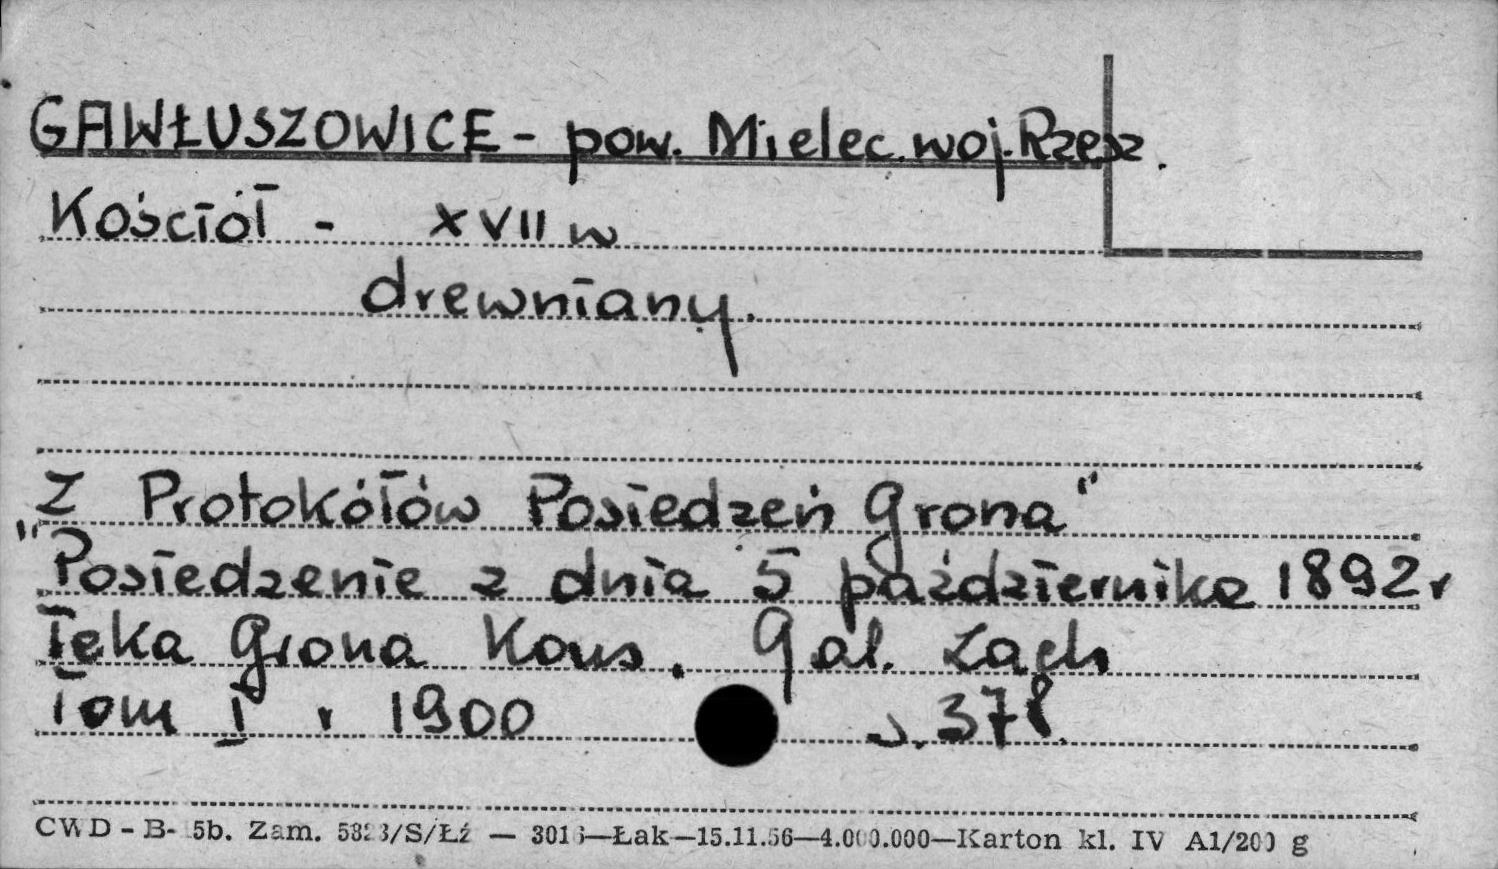 GAWŁUSZOWICE - pow. Mielec. woj. Rzesz.
Kościół - XVII w
drewniany.
Z Protokółów Posiedzeń Grona"
"Posiedzenie z dnia 5 października 1892 r
Teka Grona Kons. Gal. Zach
Tom I r 1900 s. 378.
CWD - B- 5b. Zam. /S/Łź — —Łak—15.11.56—4.000.000—Karton kl. IV A1/200 g